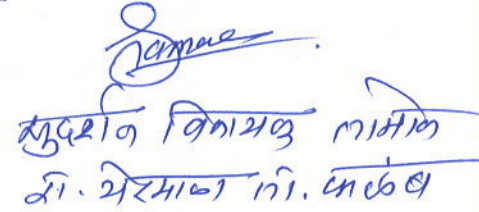 सुदर्शन विनायक लामोरे
रा. येरमाळा ता. कळंब